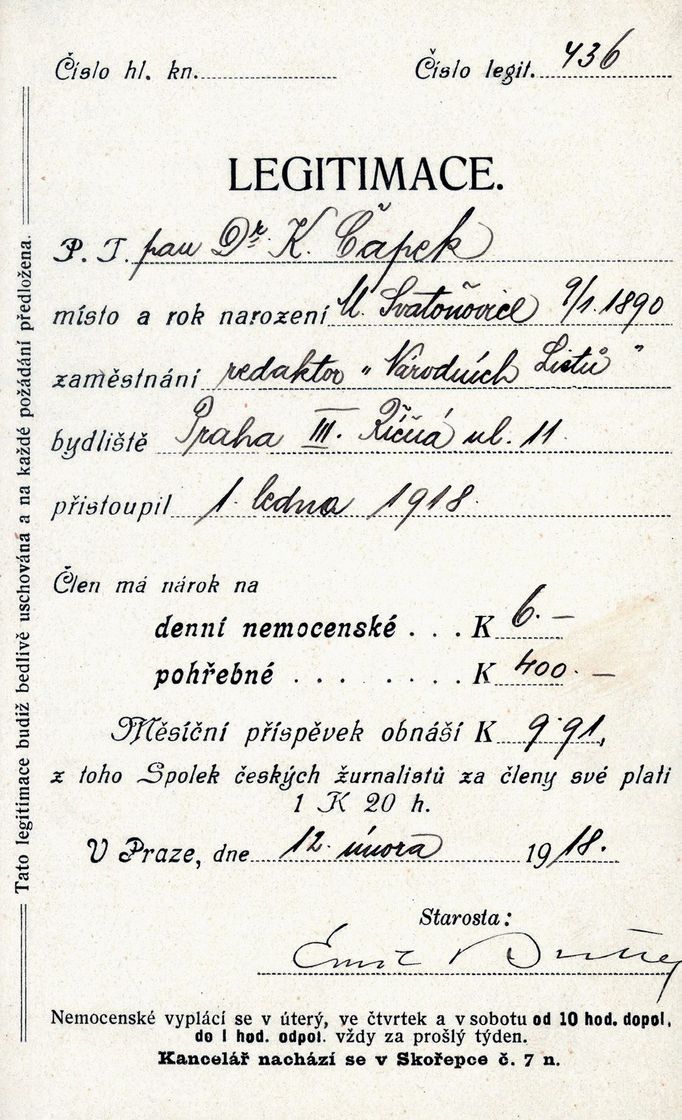 Číslo hl. kn. Číslo legit. 436
LEGITIMACE.
P. T. pan Dr. K. Čapek
místo a rok narození M. Svatoňovice 9/1. 1890
zaměstnání redaktor „Národních Listů"
bydliště Praha III. Říčná ul. 11.
přistoupil 1. ledna 1918.
Člen má nárok na
denní nemocenské . . . K 6.—
pohřebné . . . . . . . K 400.—
Měsíční příspěvek obnáší K 9·91,
z toho Spolek českých žurnalistů za členy své platí
1 K 20 h.
V Praze, dne 12. února 1918.
Starosta:
Emil
Nemocenské vyplácí se v úterý, ve čtvrtek a v sobotu od 10 hod. dopol.
do 1 hod. odpol. vždy za prošlý týden.
Kancelář nachází se v Skořepce č. 7 n.
Tato legitimace budiž bedlivě uschována a na každé požádání předložena.